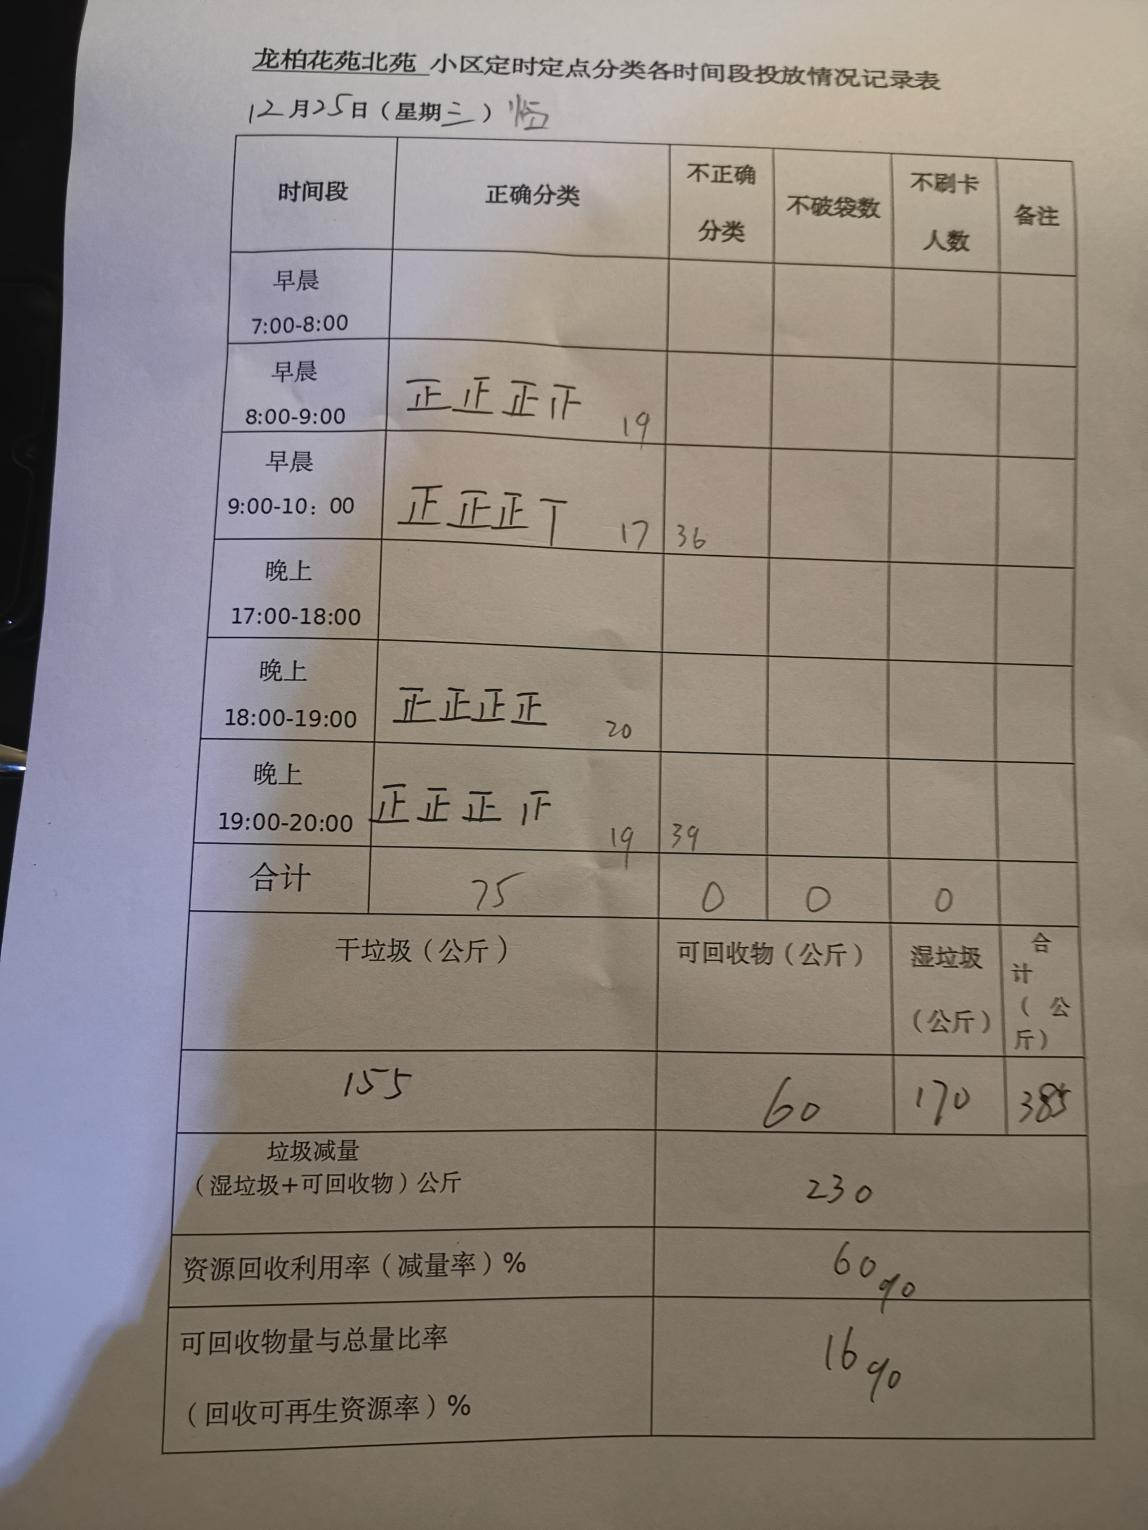 龙柏花苑北苑 小区定时定点分类各时间段投放情况记录表
12月25日（星期三）临
时间段 正确分类 不正确分类 不破袋数 不刷卡人数 备注
早晨
7:00-8:00
早晨
8:00-9:00 正正正正 19
早晨
9:00-10：00 正正正丅 17 36
晚上
17:00-18:00
晚上
18:00-19:00 正正正正 20
晚上
19:00-20:00 正正正正 19 39
合计 75 0 0 0
干垃圾（公斤） 可回收物（公斤） 湿垃圾（公斤） 合计（公斤）
155 60 170 385
垃圾减量
（湿垃圾+可回收物）公斤 230
资源回收利用率（减量率）% 60%
可回收物量与总量比率
（回收可再生资源率）% 16%